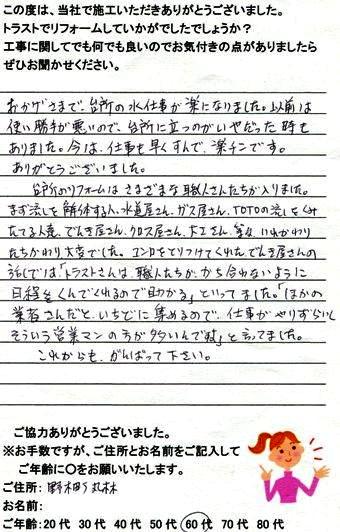 この度は、当社で施工いただきありがとうございました。
トラストでリフォームしていかがでしたでしょうか？
工事に関してでも何でも良いのでお気付きの点がありましたら
ぜひお聞かせください。
おかげさまで、台所の水仕事が楽になりました。以前は
使い勝手が悪いので、台所に立つのがいやだった時も
ありました。今は、仕事も早くすんで、楽チンです。
ありがとうございました。
台所のリフォームはさまざまな職人さんたちが入りました。
まず流しを解体する人、水道屋さん、ガス屋さん、TOTOの流しをくみ
たてる人達、でんき屋さん、クロス屋さん、大工さん、等々、いれかわり
たちかわり大変でした。エントツをとりつけてくれたでんき屋さんの
話しでは「トラストさんは、職人たちが、かち合わないように
日程をくんでくれるので助かる」といってました。「ほかの
業者さんだと、いちどに集めるので、仕事がやりずらいし
そういう営業マンの方が多いんですね」と言ってました。
これからも、がんばって下さい。
ご協力ありがとうございました。
※お手数ですが、ご住所とお名前をご記入して
ご年齢に〇をお願いいたします。
ご住所: 野木町丸林
お名前:
ご年齢:20代 30代 40代 50代 60代 70代 80代